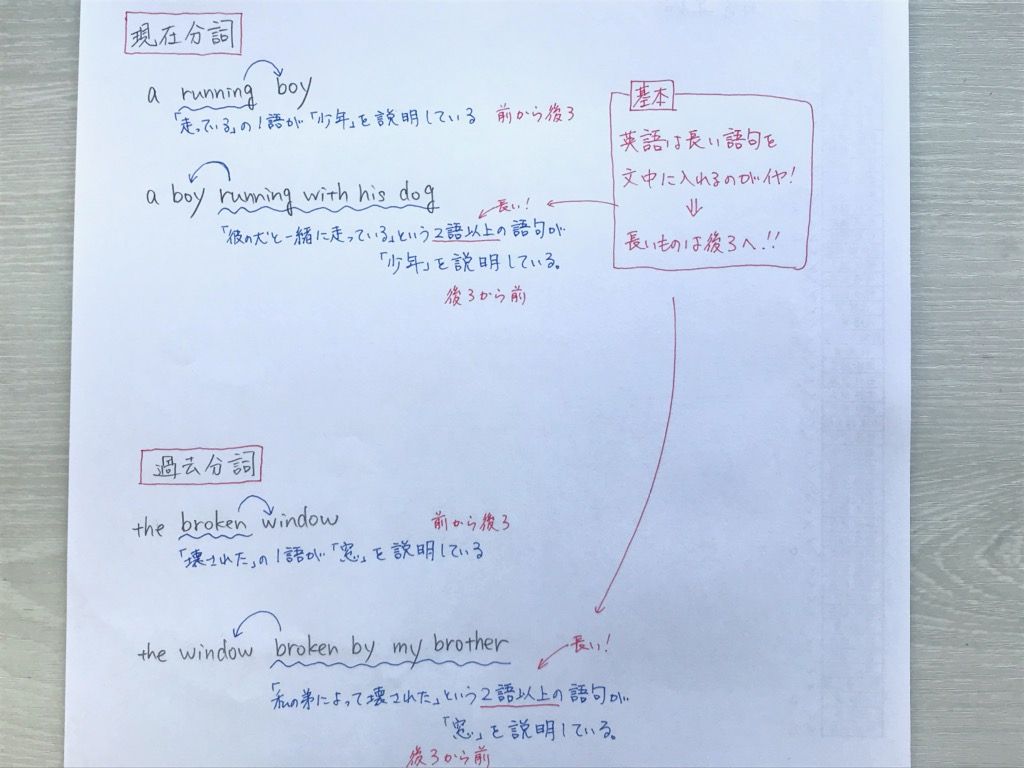 現在分詞
a running boy
「走っている」の1語が「少年」を説明している 前から後ろ
基本
英語は長い語句を
文中に入れるのがイヤ!
⇓
長いものは後ろへ!!
a boy running with his dog
長い!
「彼の犬と一緒に走っている」という2語以上の語句が
「少年」を説明している。
後ろから前
過去分詞
the broken window 前から後ろ
「壊された」の1語が「窓」を説明している
the window broken by my brother
長い!
「私の弟によって壊された」という2語以上の語句が
「窓」を説明している。
後ろから前